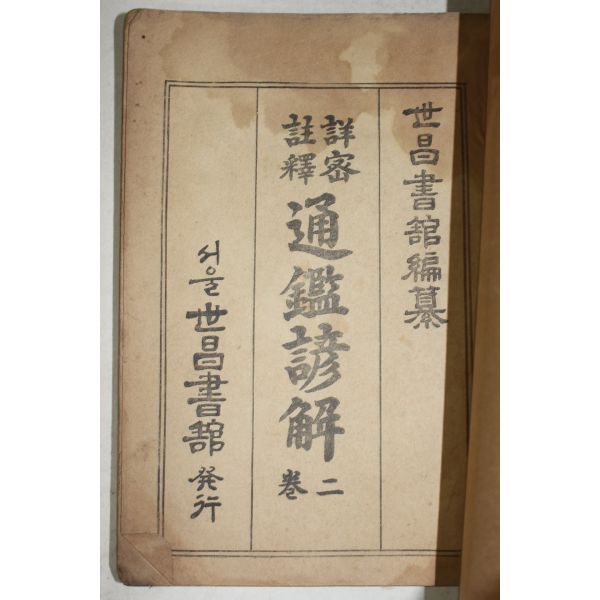 世昌書舘編纂
詳密
註釋
通鑑諺解
二
卷
서울 世昌書舘 発行